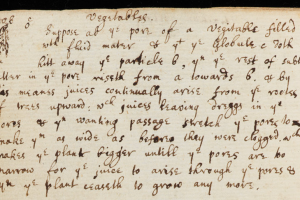 Vegetables.
Suppose ab yᵉ pore of a Vegitable filled
wᵗʰ fluid mater & yᵗ yᵉ Globule c doth
hitt away yᵉ particle b, yⁿ yᵉ rest of subt
tter in yᵉ pore riseth from a towards b. & by
his meanes juices continually arise from yᵉ rootes
f trees upward: wᶜʰ juices leaving dreggs in yᵉ
ores & yⁿ wanting passage stretch yᵉ pores to
make yᵐ as wide as before they were clogged, wᶜʰ
makes yᵉ plant bigger untill yᵉ pores are too
narrow for yᵉ juice to arise through yᵉ pores &
yⁿ yᵉ plant ceaseth to grow any more.